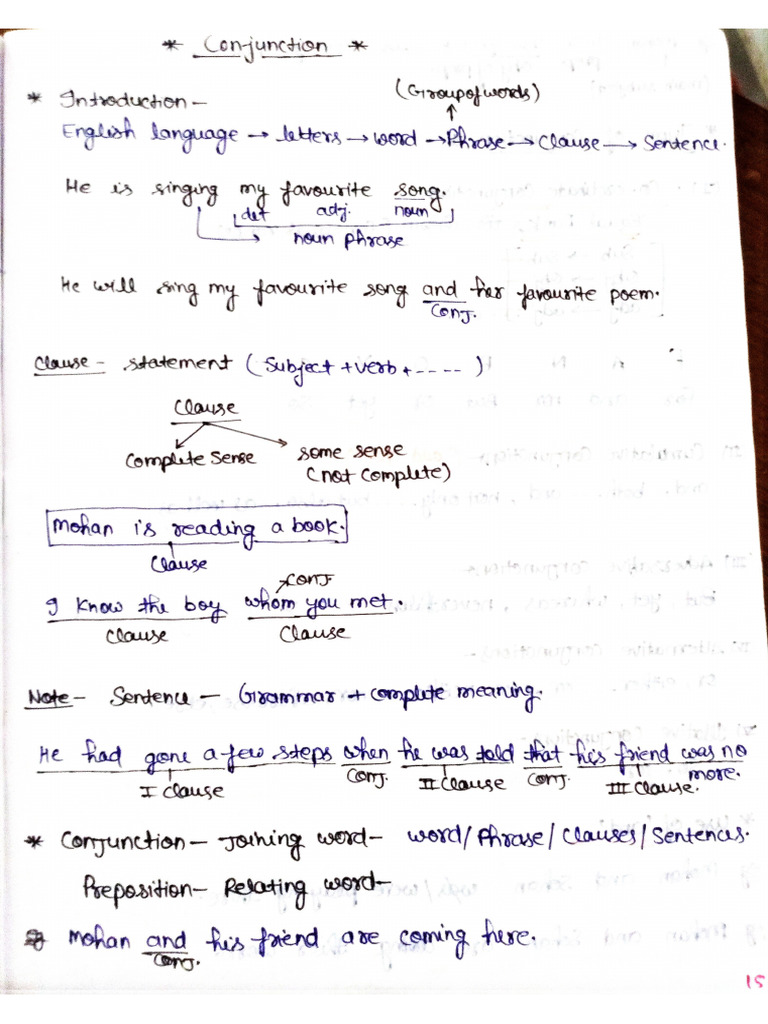 * Conjunction *
* Introduction -
(Group of words)
↑
English language → letters → word → Phrase → Clause → Sentence.
He is singing my favourite song.
det adj. noun
noun phrase
He will sing my favourite song and her favourite poem.
Conj.
Clause - statement (Subject + verb + ----)
Clause
Complete Sense
some sense
(not complete)
Mohan is reading a book.
Clause
Conj
I know the boy whom you met.
Clause Clause
Note - Sentence - Grammar + complete meaning.
He had gone a few steps when he was told that his friend was no
more.
I Clause Conj. II Clause Conj. III Clause.
* Conjunction - Joining word - word/Phrase/Clauses/Sentences.
Preposition - Relating word -
Mohan and his friend are coming here.
Conj.
15